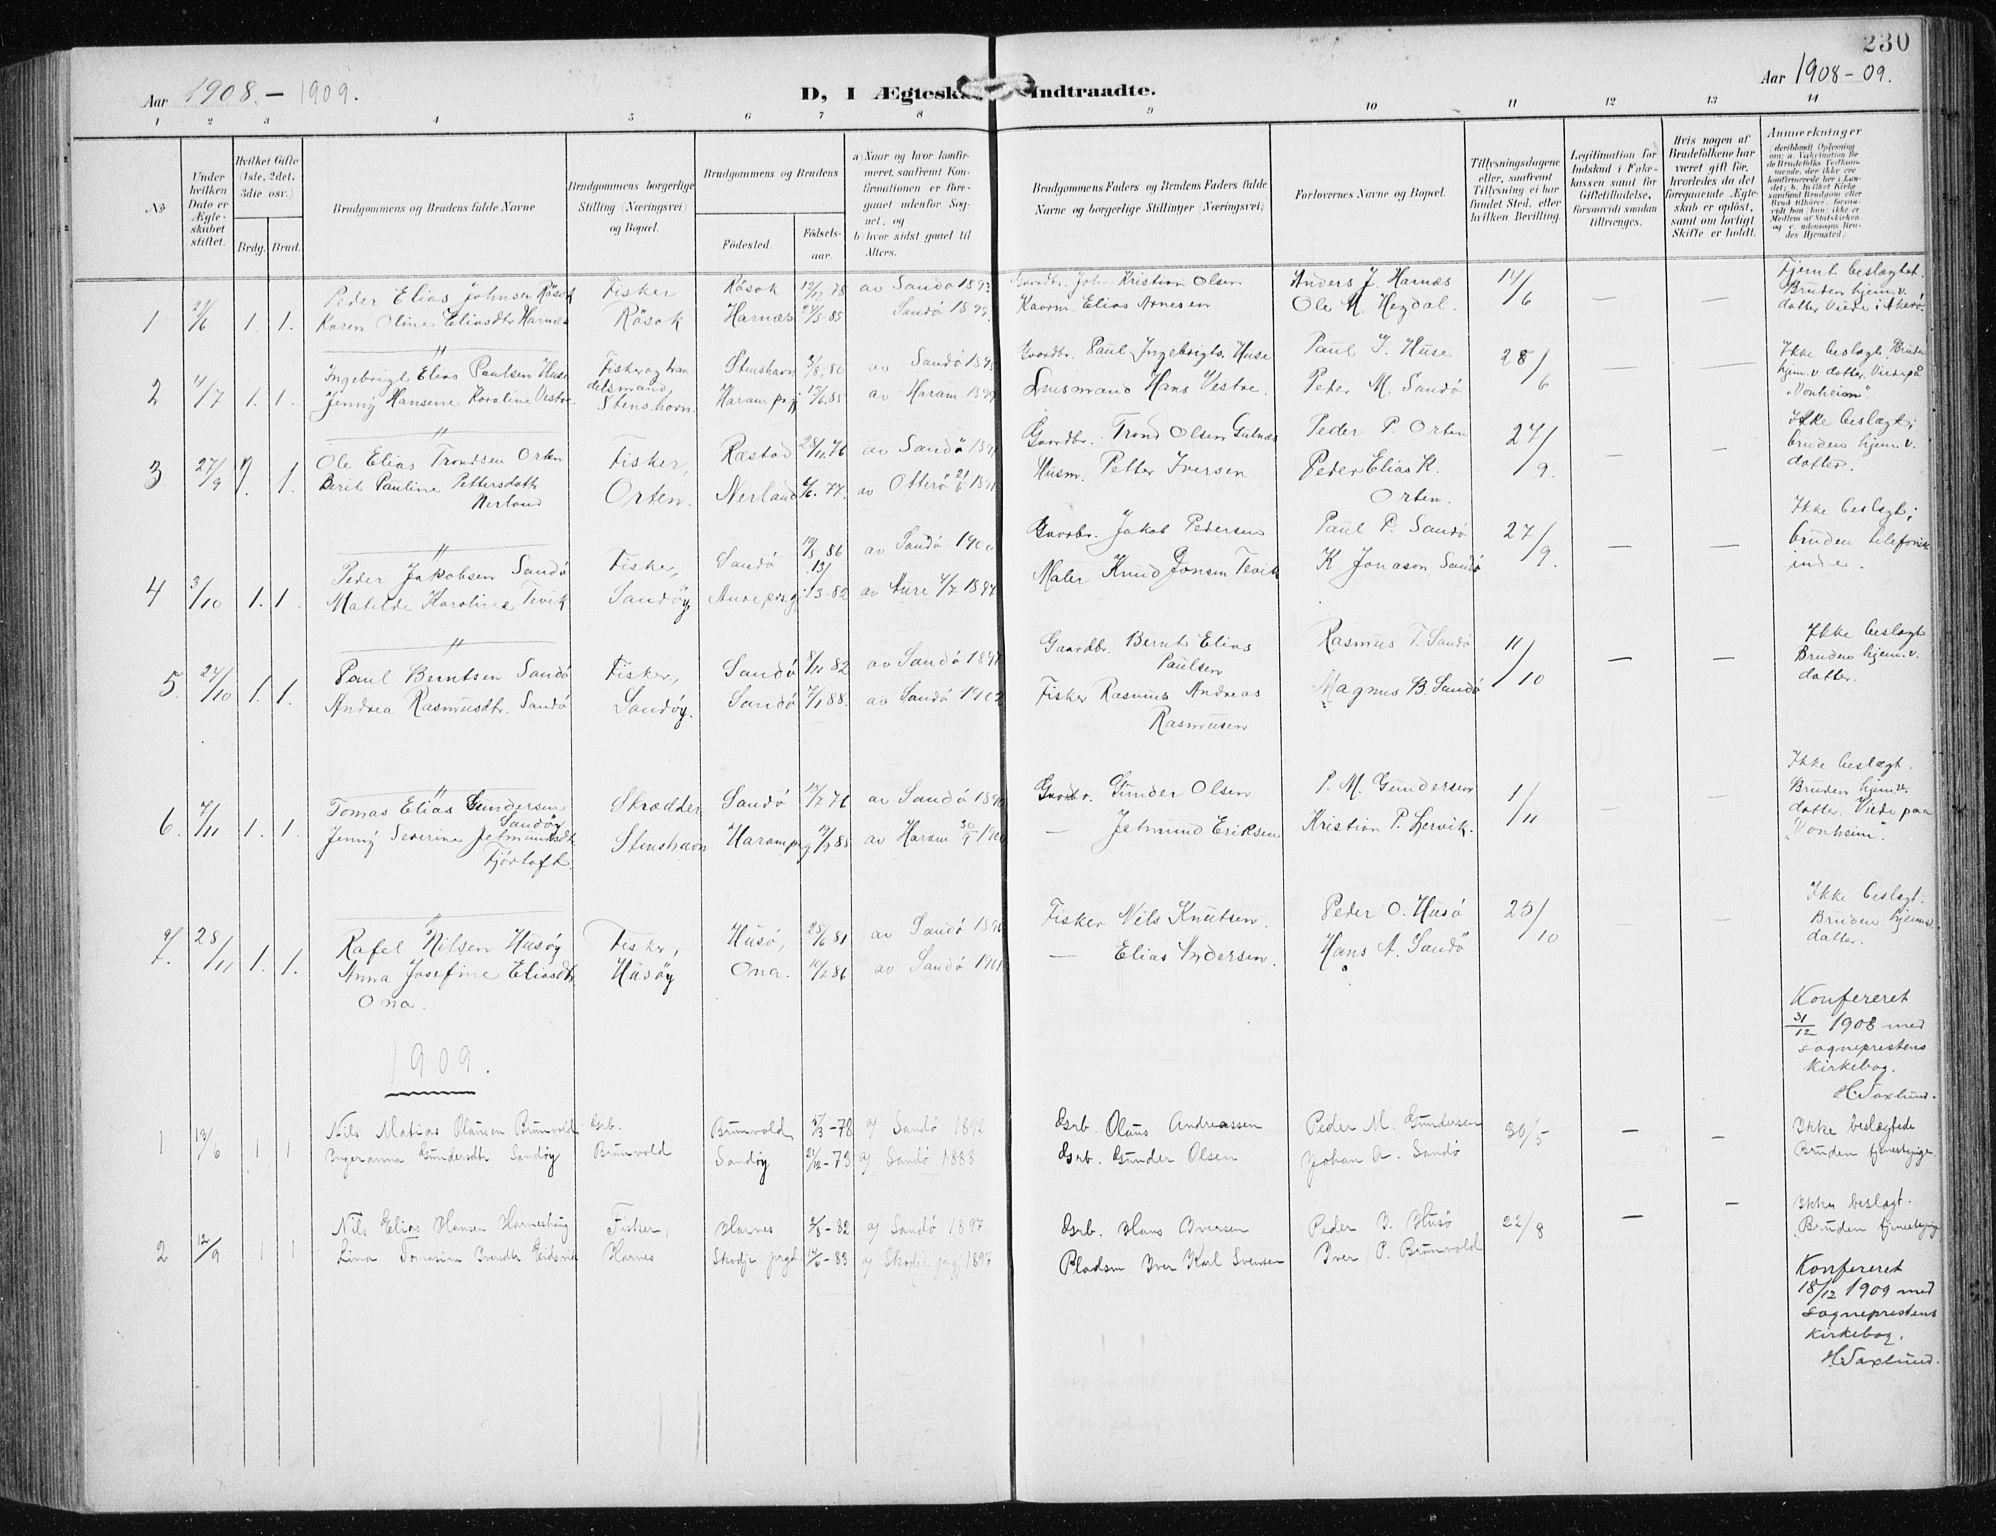 230
Aar 1908. - 1909.
D, I Ægtesk Indtraadte.
Aar 1908-09.
1 2 3 4 5 6 7 8 9 10 11 12 13 14
No
Under hvilken Dato er Ægteskabet stiftet.
Hvilket Gifte (1ste, 2det, 3dte osv.)
Brdg. Brud.
Brudgommens og Brudens fulde Navne
Brudgommens borgerlige Stilling (Næringsvei) og Bopæl.
Brudgommens og Brudens
Fødested.
Fødselsaar.
a) Naar og hvor konfirmeret, saafremt Konfirmationen er foregaaet udenfor Sognet, og
b) hvor sidst gaaet til Alters.
Brudgommens Faders og Brudens Faders fulde Navne og borgerlige Stillinger (Næringsvei)
Forlovernes Navne og Bopæl.
Tillysningsdagene eller, saafremt Tillysning ei har fundet Sted, efter hvilken Bevilling.
Legitimation for Indskud i Enkekassen samt for Giftetilladelse, forsaavidt saadan tiltrænges.
Hvis nogen af Brudefolkene har været gift før, hvorledes da det foregaaende Ægteskab er opløst, samt om lovligt Skifte er holdt.
Anmerkninger
Peder Elias Johnsen Råsok Fisker Råsok 12/12-78 av Sandø 1893 Gaardbr. John Kristian Olsen Anders J. Harnæs 14/6 Fjernt beslægtet.
1 21/6 1. 1. Karen Oline Eliasdtr Harnæs Råsok Harnæs 27/3-85 Sandø 1899. Elias Arnesen Ole M. Hegdal. — — Bruden hjem.v. datter Viede i Akerø.
Ingebrigt Elias Paulsen Huse Fisker og handelsmand, Stenshavn 80 av Sandø Gaardbr. Paul Ingebrigts. Huse Paul I. Huse 28/6 Ikke beslægt. Bruden
2 4/7 1. 1. Jenny Hansine Karoline Vestre Stenshavn. Haram prgj 85 av Haram 1899 Hans Vestre. Peder M. Sandø — — hjem.v datter. Viede på "Vonheim".
Ole Elias Trondsen Orten Fisker, Ræstad 28/11 76 av Sandø Gaardbr. Trond Olsen Peder P. Orten 27/9. Ikke beslægt;
3 27/9 1. 1. Berit Pauline Pettersdatt. Nerland Orten. Nerland 77. av Otterø Husm. Petter Iversen Peder Elias K. Orten. — — bruden hjem.v. datter.
Peder Jakobsen Sandø Fisker, Sandø 86 av Sandø Gaardbr. Jakob Pedersen Paul P. Sandø 27/9. Ikke beslægt;
4 3/10 1. 1. Matilde Karoline Tevik Sandøy Aure prgj. 13/3-82 av Aure 4/7 1897 Maler Knud Jonsen Tevik K Jonason Sandø — — bruden telefonistinde.
Paul Berntsen Sandø Fisker, Sandø 8/11 82 av Sandø Gaardbr. Bernt Elias Paulsen Rasmus T. Sandø 11/10 Ikke beslægt
5. 24/10 1. 1. Andrea Rasmusdtr. Sandø Sandøy. Sandø 7/1 88. av Sandø Fisker Rasmus Andreas Rasmusen Magnus B. Sandø — — Bruden hjem.v. datter.
Tomas Elias Gundersen Sandøy Skrædder Sandø 76 av Sandø Gaardbr. Gunder Olsen P. M. Gundersen 1/11 Ikke beslægt.
6. 7/11 1. 1. Jenny Severine Jetmundsdtr Fjørtoft. Stenshavn Haram prgj 85 av Haram — Jetmund Eriksen Kristian P. Lervik. — — Bruden hjem.v. datter. Viede paa "Vonheim".
Rafel Nilsen Husøy Fisker, Husø, 28/6 81 av Sandø 1896 Fisker Nils Knutsen. Peder O. Husø 25/10 Ikke beslægt.
7. 28/11 1. 1. Anna Josefine Eliasdtr Ona. Husøy Ona. 86 av Sandø 1901 — Elias Andersen. Hans A. Sandø — — Bruden hjemv. datter.
Konfereret 31/12 1908 med sogneprestens kirkebog. H. Saxlund.
1909.
Nils Matias Olausen Brunvold Grb. Brunvold 5/3-78 af Sandø 1892 Grb. Olaus Andreassen Peder M. Gundersen 30/5 — — Ikke beslægtede
1 13/6 1 1 Ingeranna Gundersdtr Sandøy Brunvold Sandøy 21/12-73 af Sandø 1888 Grb. Gunder Olsen Johan A. Sandø Bruden tjenestepige
Nils Elias Hansen Harneshaug Fisker, Harnes -82 af Sandø 1897 Grb. Hans Iversen Peder I. Husø 22/8 — — Ikke beslægt.
2 12/9 1 1 Lina Tomasine Iversdtr Eidsvik Harnes Skodje prgj -83 af Skodje prgj 1897 Pladsm. Iver Karl Svensen Iver P. Brunvold Bruden tjenestepige
Konfereret 18/12 1909 med sogneprestens kirkebog. H. Saxlund.